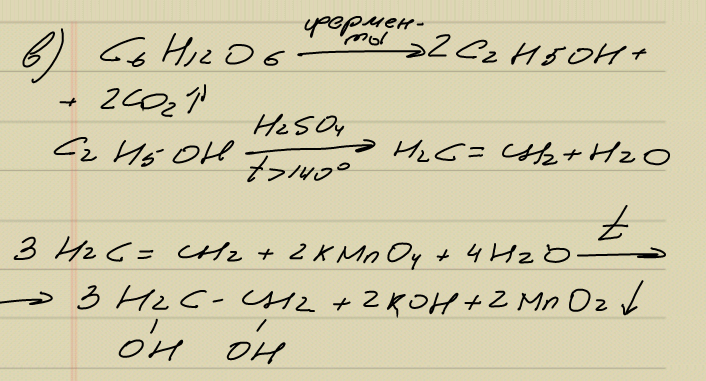 в) C6H12O6 —ферменты→ 2C2H5OH +
+ 2CO2↑
C2H5OH —H2SO4, t>140°→ H2C=CH2+H2O
3H2C=CH2 + 2KMnO4 + 4H2O —t→
→ 3H2C-CH2 + 2KOH+2MnO2↓
OH OH